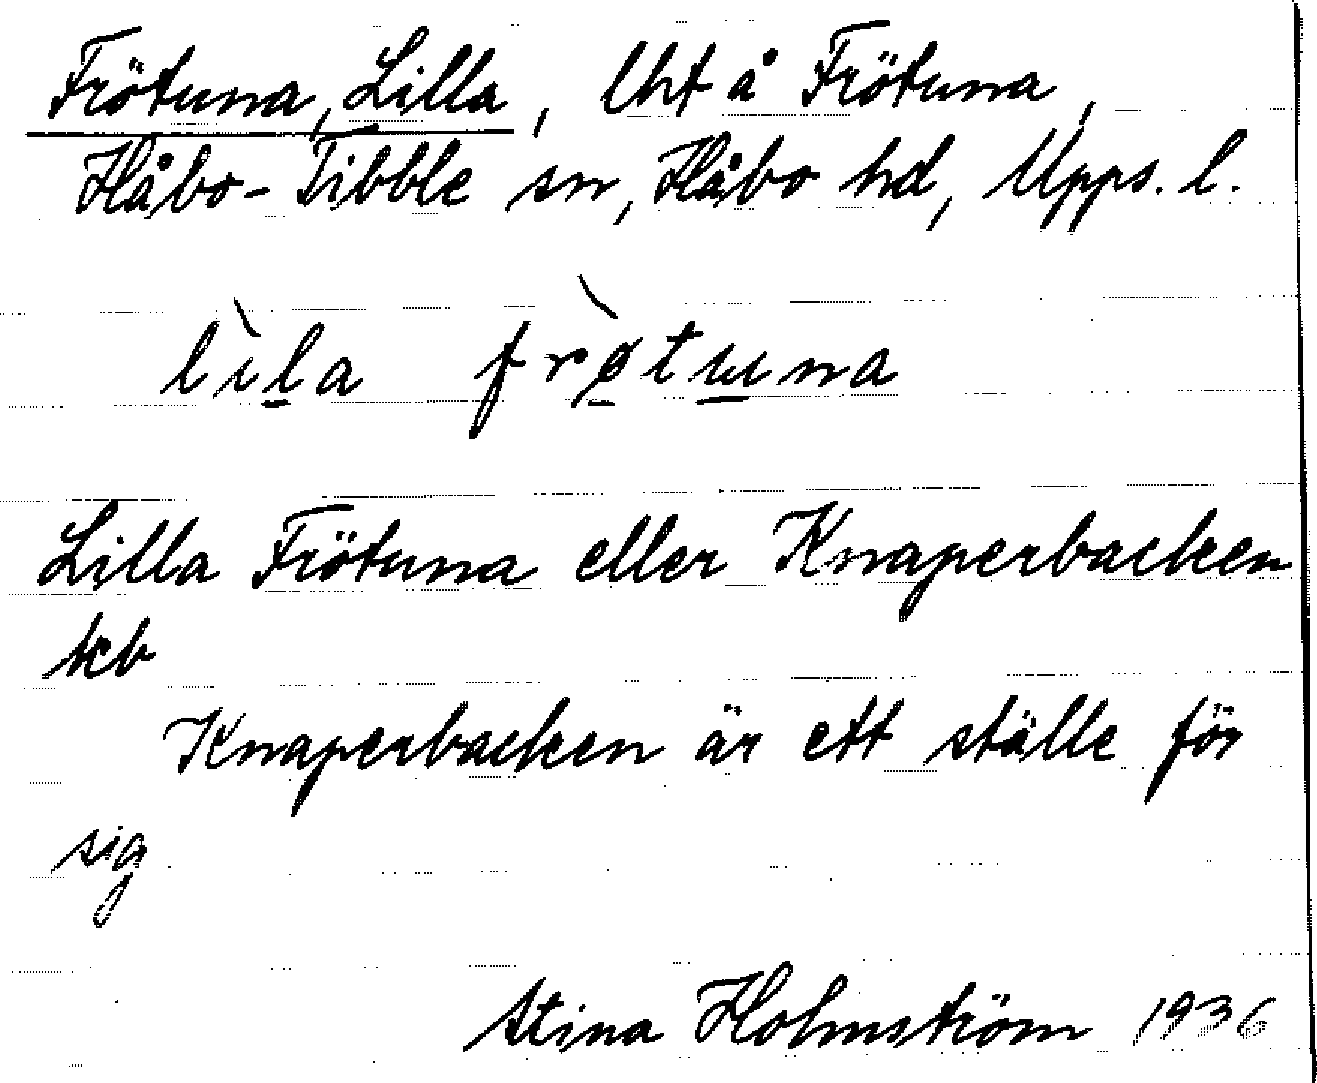 Frötuna, Lilla, lht å Frötuna,
Håbo-Tibble sn, Håbo hd, Upps. l.
lìḻa frø̱̀tɯ̱na
Lilla Frötuna eller Knaperbacken
kb
Knaperbacken är ett ställe för
sig
Stina Holmström 1936